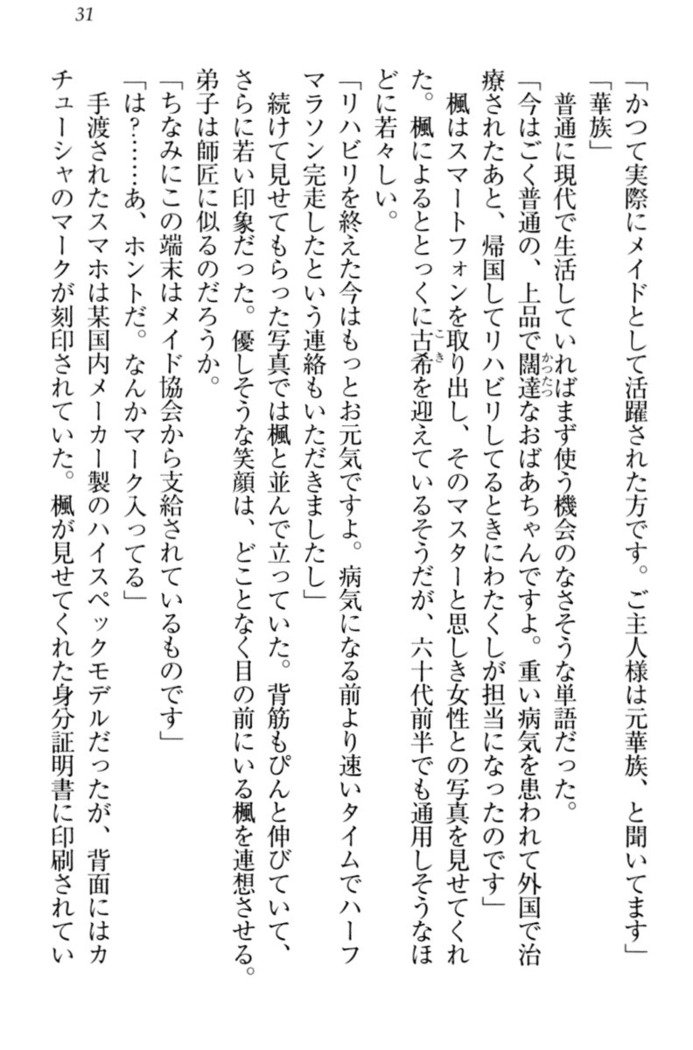 31
「かつて実際にメイドとして活躍された方です。ご主人様は元華族、と聞いてます」
「華族」
普通に現代で生活していればまず使う機会のなさそうな単語だった。
「今はごく普通の、上品で闊達なおばあちゃんですよ。重い病気を患われて外国で治
かったつ
療されたあと、帰国してリハビリしてるときにわたくしが担当になったのです」
楓はスマートフォンを取り出し、そのマスターと思しき女性との写真を見せてくれ
た。楓によるととっくに古希を迎えているそうだが、六十代前半でも通用しそうなほ
こき
どに若々しい。
「リハビリを終えた今はもっとお元気ですよ。病気になる前より速いタイムでハーフ
マラソン完走したという連絡もいただきましたし」
続けて見せてもらった写真では楓と並んで立っていた。背筋もぴんと伸びていて、
さらに若い印象だった。優しそうな笑顔は、どことなく目の前にいる楓を連想させる。
弟子は師匠に似るのだろうか。
「ちなみにこの端末はメイド協会から支給されているものです」
「は?……あ、ホントだ。なんかマーク入ってる」
手渡されたスマホは某国内メーカー製のハイスペックモデルだったが、背面にはカ
チューシャのマークが刻印されていた。楓が見せてくれた身分証明書に印刷されてい